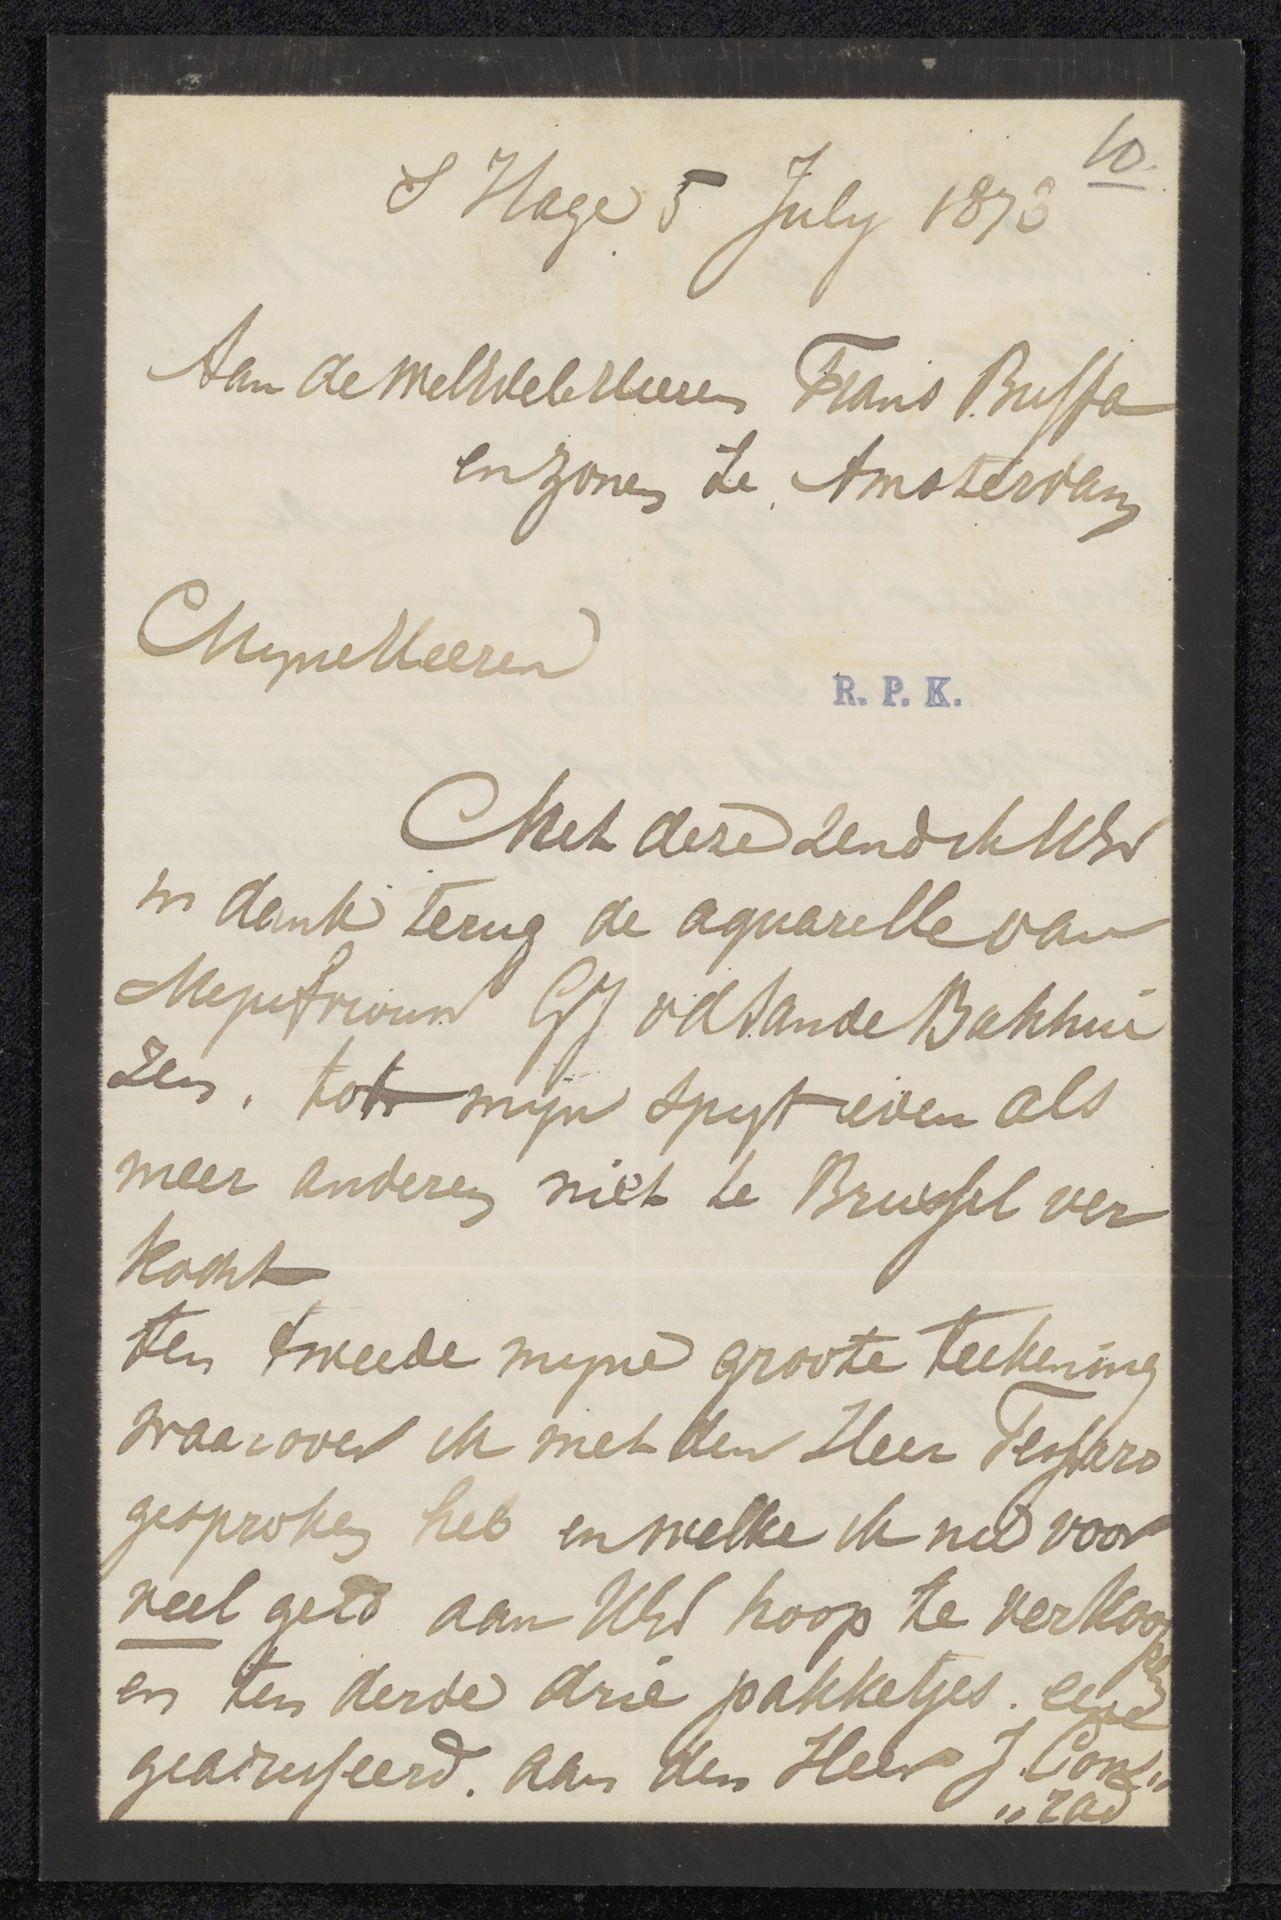 10
S Hage 5 July 1873
Aan de WelEdele Heeren Frans Buffa
en Zonen te Amsterdam
Myne Heeren
R. P. K.
Met deze zend ik UEd
in dank terug de aquarelle van
Mejufvrouw GJ vd Sande Bakhui
zen, tot mijn spyt even als
meer anderen niet te Brussel ver
kocht
ten tweede myne groote teekening
waarover ik met den Heer Tessaro
gesproken heb en welke ik nu voor
veel geld aan UEd hoop te verkoopen
en ten derde drie pakketjes. eene
geadresseerd. aan den Heer J. Con„
„rad